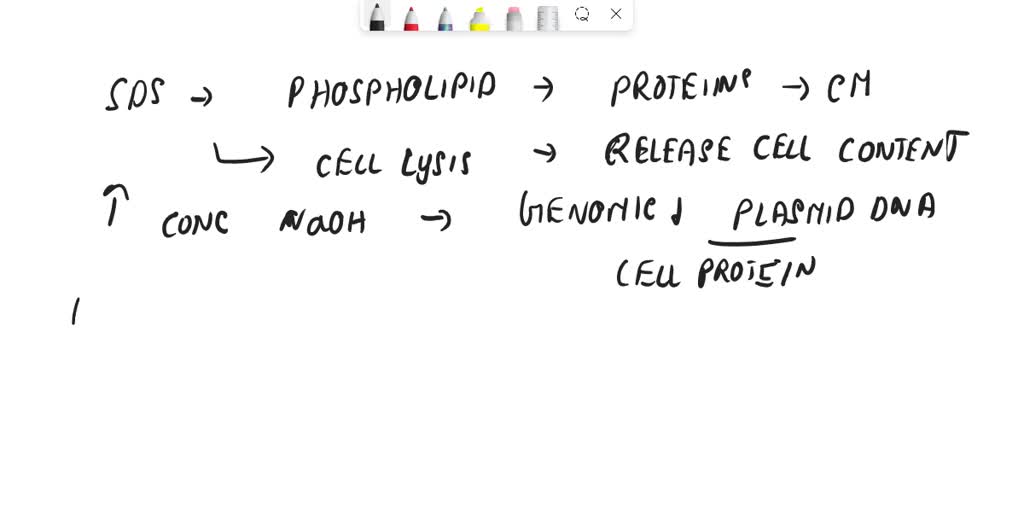 SDS → PHOSPHOLIPID → PROTEINS → CM
↳ CELL LYSIS → RELEASE CELL CONTENT
↑ CONC NaOH → GENOMIC & PLASMID DNA
CELL PROTEIN